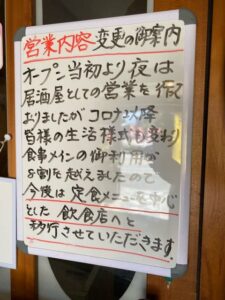 営業内容変更の御案内
オープン当初より夜は
居酒屋としての営業を行って
おりましたがコロナ以降
皆様の生活様式も変わり
食事メインの御利用が
8割を越えましたので
今後は定食メニューを中心
とした飲食店へと
移行させていただきます。